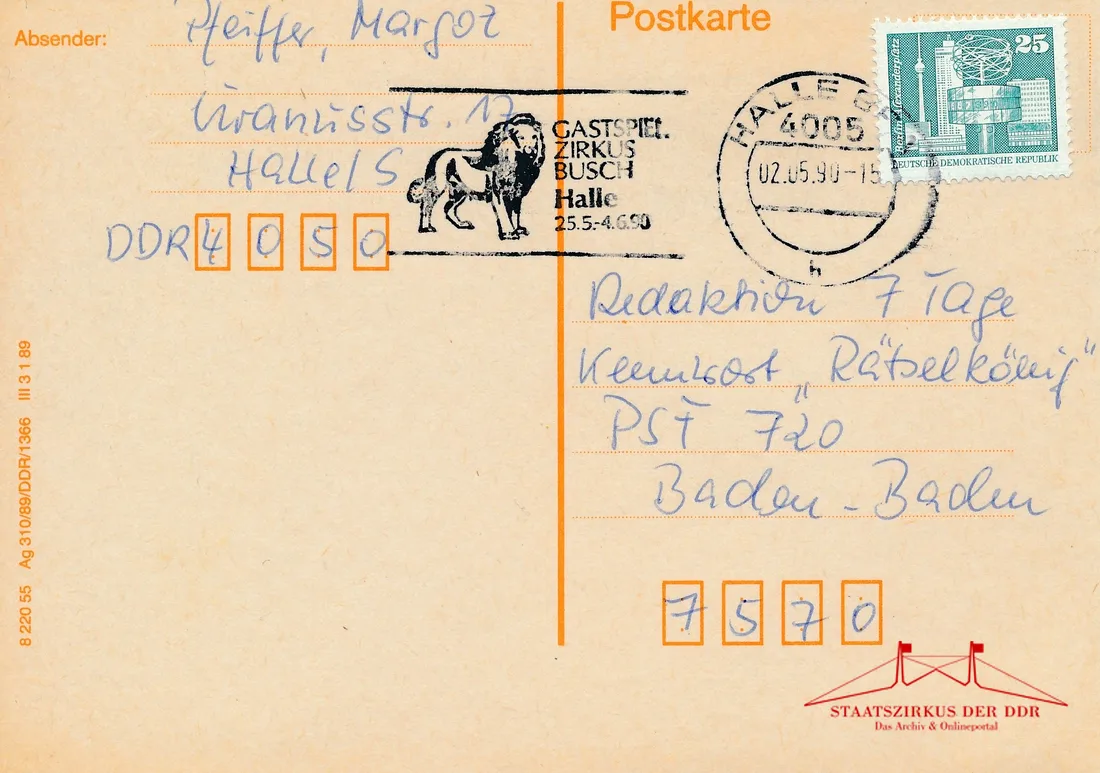 Absender:
Pfeiffer, Margot
Uranusstr. 17
Halle/S
DDR 4050
8 220 55 Ag 310/89/DDR/1366 III 3 1 89
Postkarte
GASTSPIEL
ZIRKUS
BUSCH
Halle
25.5.-4.6.90
HALLE
4005
02.05.90-15
h
25
Berlin, Alexanderplatz
DEUTSCHE DEMOKRATISCHE REPUBLIK
Redaktion 7 Tage
Kennwort „Rätselkönig"
PSF 720
Baden-Baden
7570
STAATSZIRKUS DER DDR
Das Archiv & Onlineportal